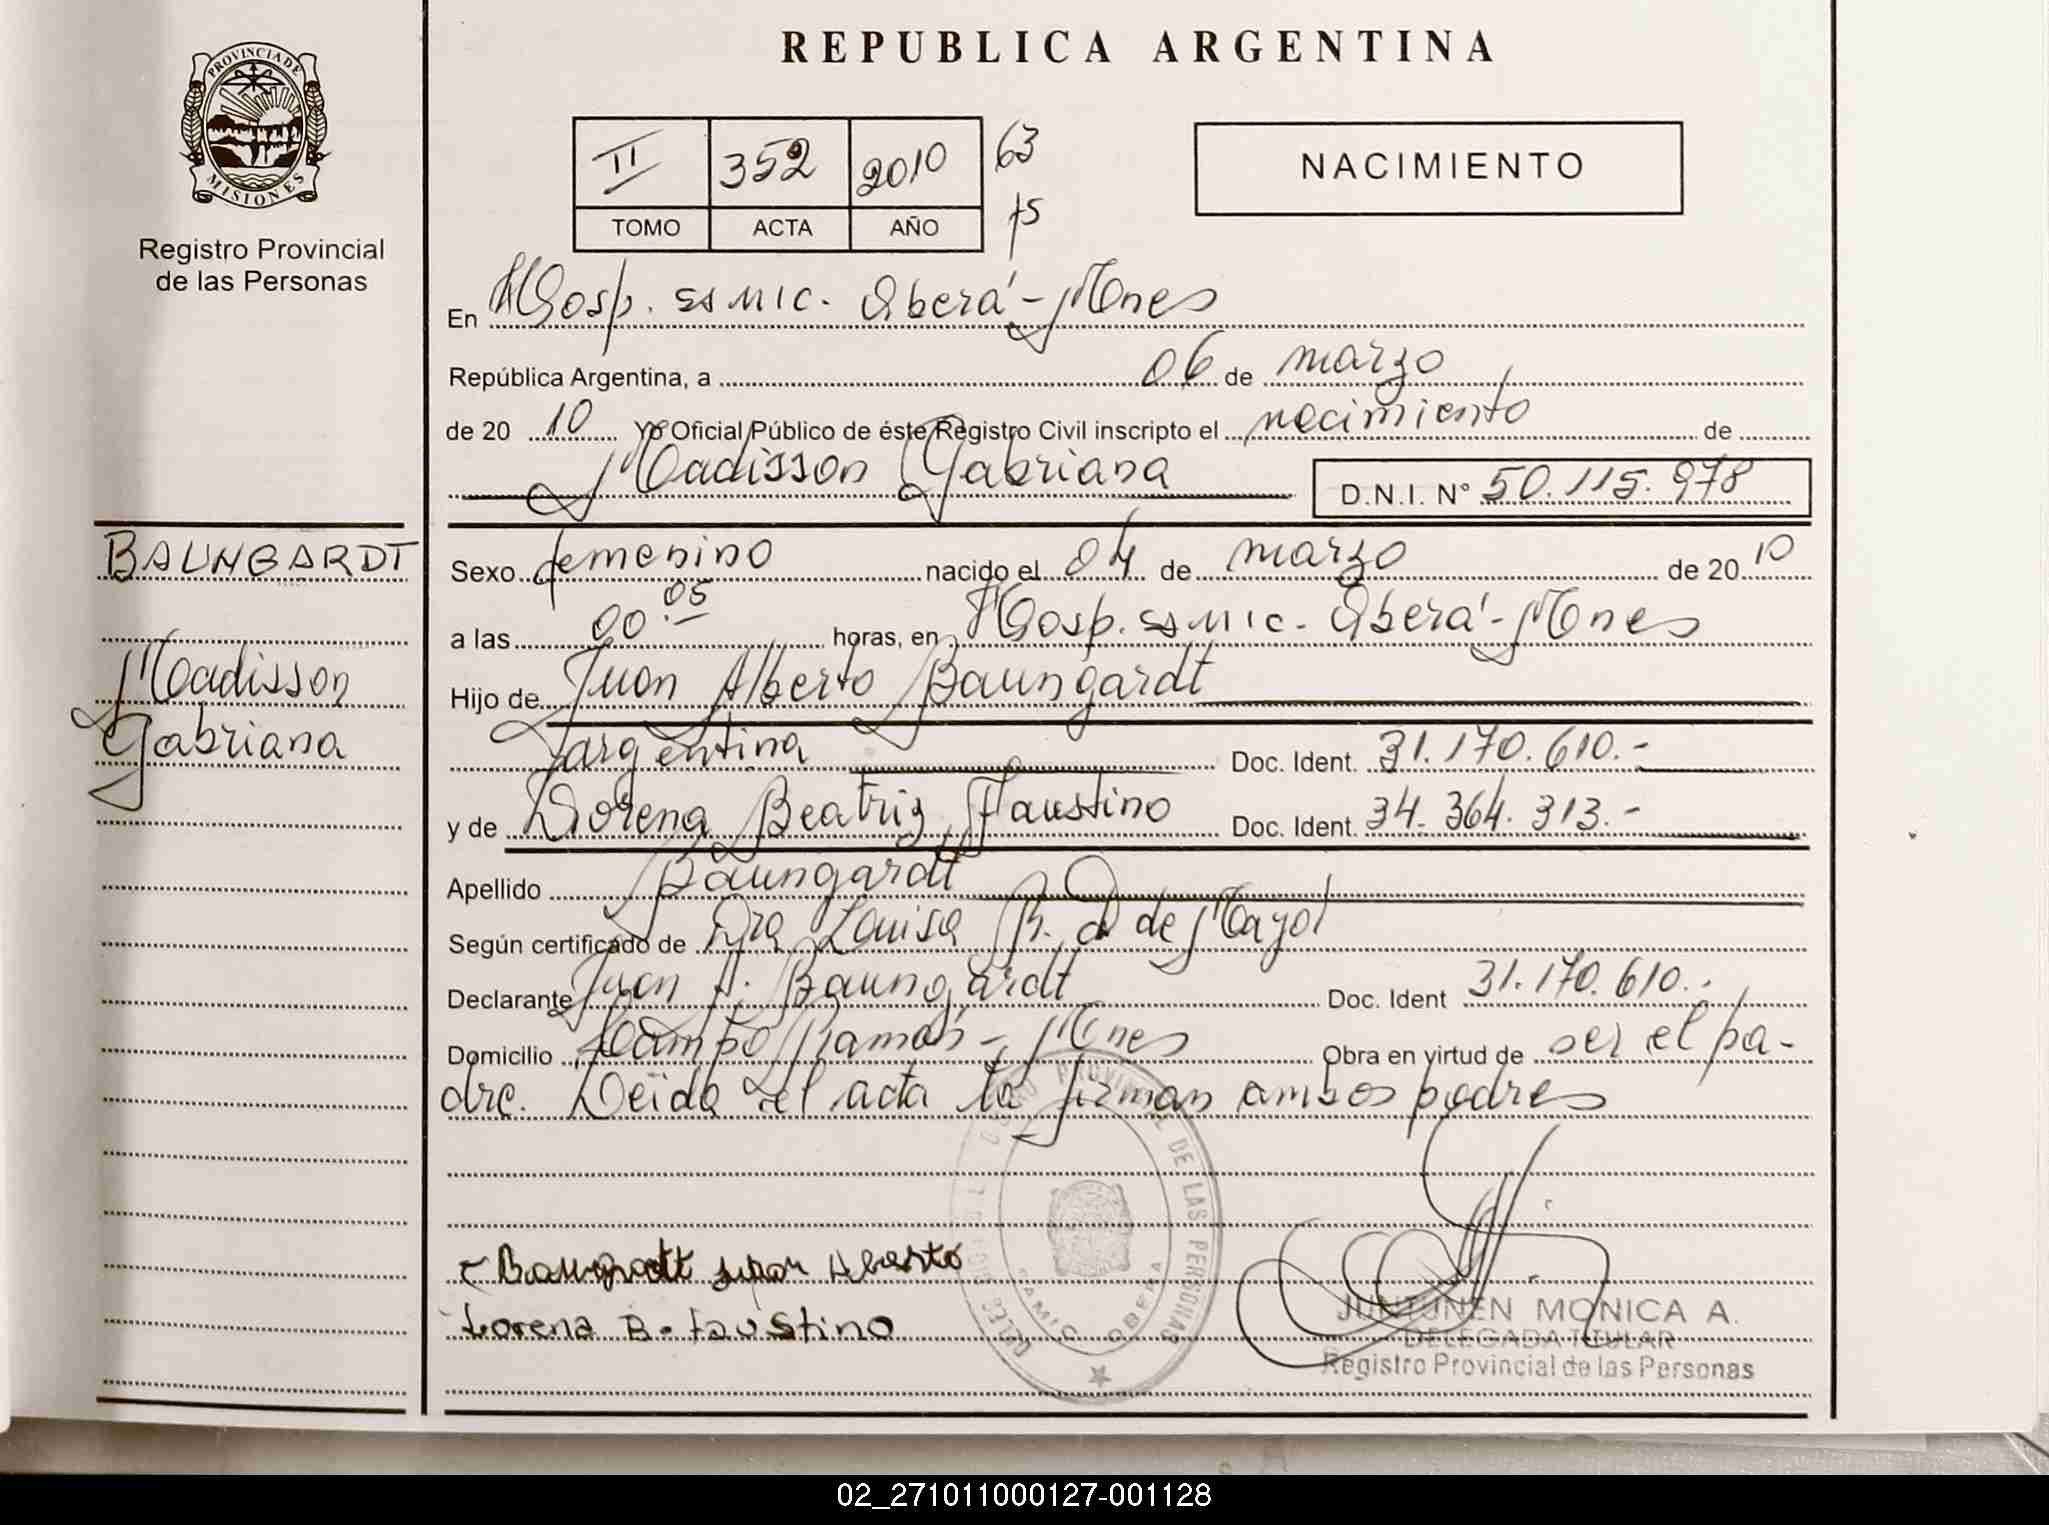 REPUBLICA ARGENTINA
PROVINCIA DE
MISIONES
Registro Provincial
de las Personas
II 352 2010 63
TOMO ACTA AÑO 75
NACIMIENTO
En Hosp. SAMIC. Oberá - Mnes
República Argentina, a 06 de marzo
de 20 10 Yo Oficial Público de éste Registro Civil inscripto el nacimiento de
Madisson Gabriana D.N.I. N° 50.115.978
BAUNGARDT
Madisson
Gabriana
Sexo femenino nacido el 04 de marzo de 20 10
a las 00 05 horas, en Hosp. SAMIC. Oberá - Mnes
Hijo de Juan Alberto Baungardt
argentina Doc. Ident. 31.170.610.-
y de Lorena Beatriz Faustino Doc. Ident. 34.364.313.-
Apellido Baungardt
Según certificado de Dra Luisa R. de Mayol
Declarante Juan A. Baungardt Doc. Ident 31.170.610.-
Domicilio Campo Ramón - Mnes Obra en virtud de ser el pa-
dre. Leída el acta la firman ambos padres
Baungardt Juan Alberto
Lorena B. Faustino
PROVINCIAL DE LAS PERSONAS
SAMIC OBERA
JUNTUNEN MONICA A.
DELEGADA TITULAR
Registro Provincial de las Personas
02_271011000127-001128